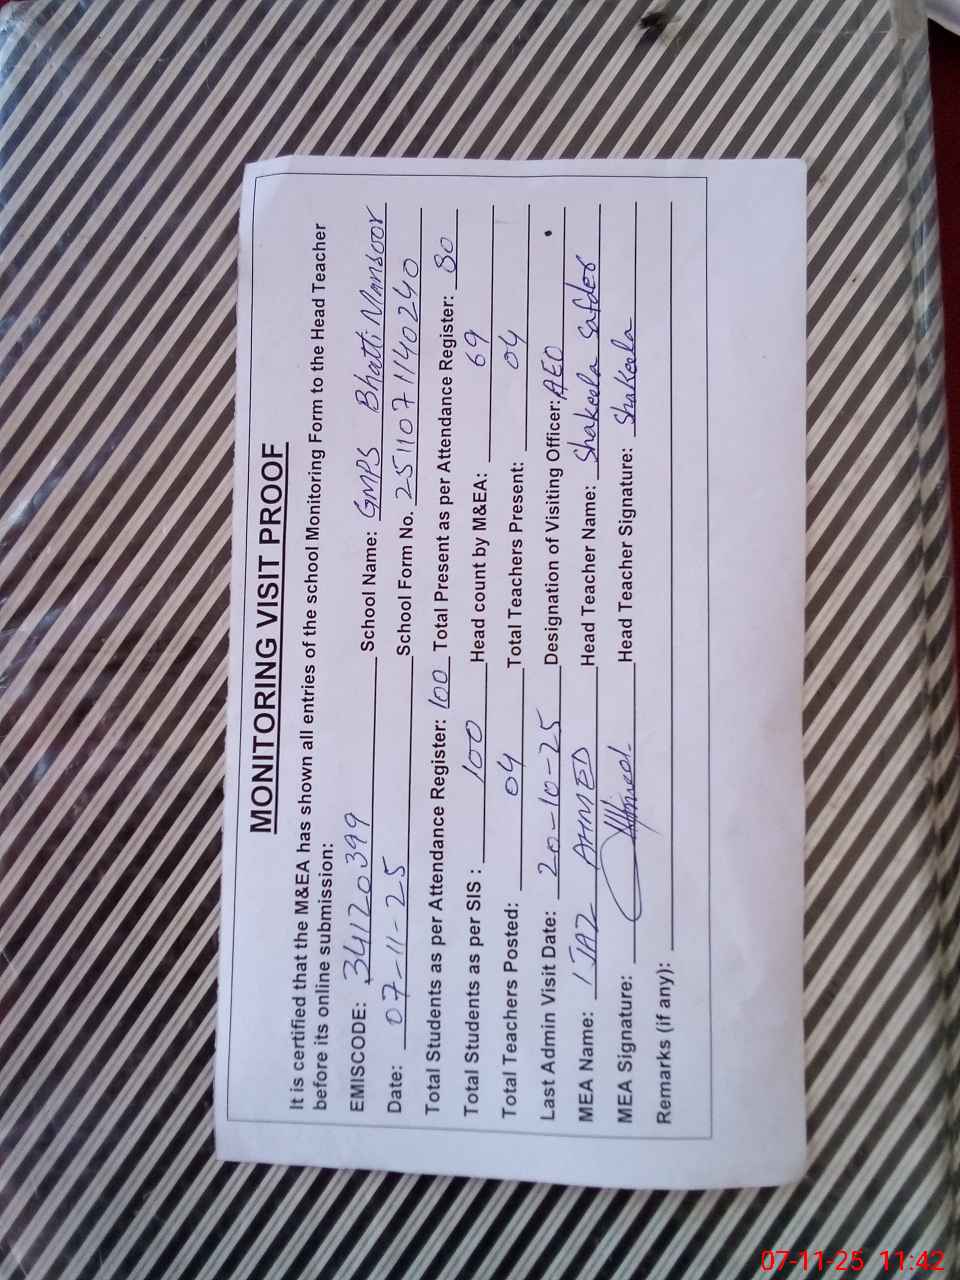 MONITORING VISIT PROOF
It is certified that the M&EA has shown all entries of the school Monitoring Form to the Head Teacher
before its online submission:
EMISCODE: 34120399 School Name: GMPS Bhatti Mansoor
Date: 07-11-25 School Form No. 2511071140240
Total Students as per Attendance Register: 100 Total Present as per Attendance Register: 80
Total Students as per SIS : 100 Head count by M&EA: 69
Total Teachers Posted: 04 Total Teachers Present: 04
Last Admin Visit Date: 20-10-25 Designation of Visiting Officer: AEO
MEA Name: IJAZ AHMED Head Teacher Name: Shakeela Safder
MEA Signature: Head Teacher Signature: Shakeela
Remarks (if any):
07-11-25 11:42